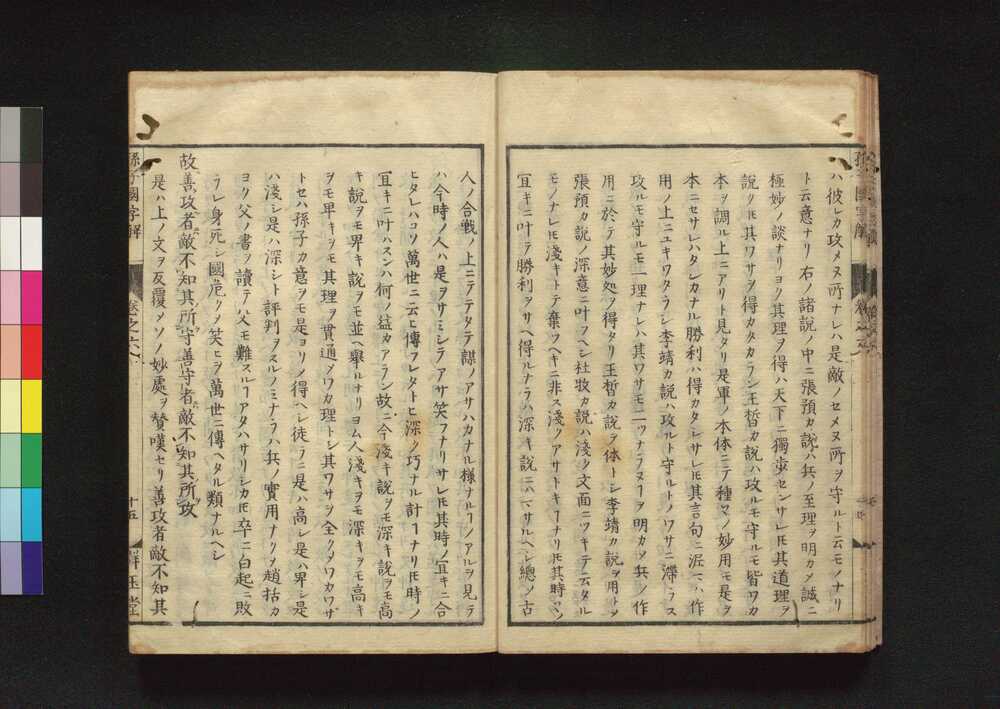 ハ彼レカ攻メヌ所ナレハ是敵ノセメヌ所ヲ守ルト云モノナリ
ト云意ナリ右ノ諸説ノ中ニ張預カ説ハ兵ノ至理ヲ明カメ誠ニ
極妙ノ談ナリヨク其理ヲ得ハ天下ニ獨歩センサレ𪜈其道理ヲ
説クリ𪜈其ワサヲ得カタカラン王晳カ説ハ攻ルモ守ルモ皆ワカ
本ヲ調ル上ニアリト見タリ是軍ノ本体ニテ種々ノ妙用モ是ヲ
本ニセサレハタシカナル勝利ハ得カタシサレ𪜈其言句ニ泥マハ作
用ノ上ニユキワタラシ李靖カ説ハ攻ルト守ルトノワサニ滞ラス
攻ルモ守ルモ一理ナレハ其ワサモ二ツナラヌヿヲ明カメ兵ノ作
用ニ於テ其妙処ヲ得タリ王晳カ説ヲ体トシ李靖カ説ヲ用トメ
張預カ説ノ深意ニ叶フヘシ杜牧カ説ハ淺ク文面ニツキテ云タル
モノナレ𪜈淺キトテ棄ツヘキニ非ス淺クアサトキヿナリ𪜈其時ノ
冝キニ叶テ勝利ヲサヘ得ルナラハ深キ説ニハマサルヘシ總メ古
人ノ合戰ノ上ニテテタテ謀ノアサハカナル様ナルヿノアルヲ見テ
ハ今時ノ人ハ是ヲサミシテアサ笑フナリサレ𪜈其時ノ冝キニ合
ヒタレハコソ萬世ニ云ヒ傳フレタトヒ深ク巧ナル計ヿナリ𪜈時ノ
冝キニ叶ハスンハ何ノ益カアラン故ニ今淺キ説ヲモ深キ説ヲモ高
キ説ヲモ卑キ説ヲモ並ヘ舉ルナリヨム人淺キヲモ深キヲモ高キ
ヲモ卑キヲモ其理ヲ貫通メワカ理トシ其ワサヲ全クメワカワサ
トセハ孫子カ意ヲモ是ヨリメ得ヘシ徒ラニ是ハ高シ是ハ卑シ是
ハ淺シ是ハ深シト評判ヲスルノミナラハ兵ノ實用ナクメ趙括カ
ヨク父ノ書ヲ讀テ父モ難スルヿアタハサリシカ𪜈卒ニ白起ニ敗
ラレ身死シ國危クメ笑ヒヲ萬世ニ傳ヘタル類ナルヘシ
故善攻者敵不知其所守善守者敵不知其所攻
是ハ上ノ文ヲ反覆メソノ妙處ヲ賛嘆セリ善攻者敵不知其
孫子國字解
卷之六
十五